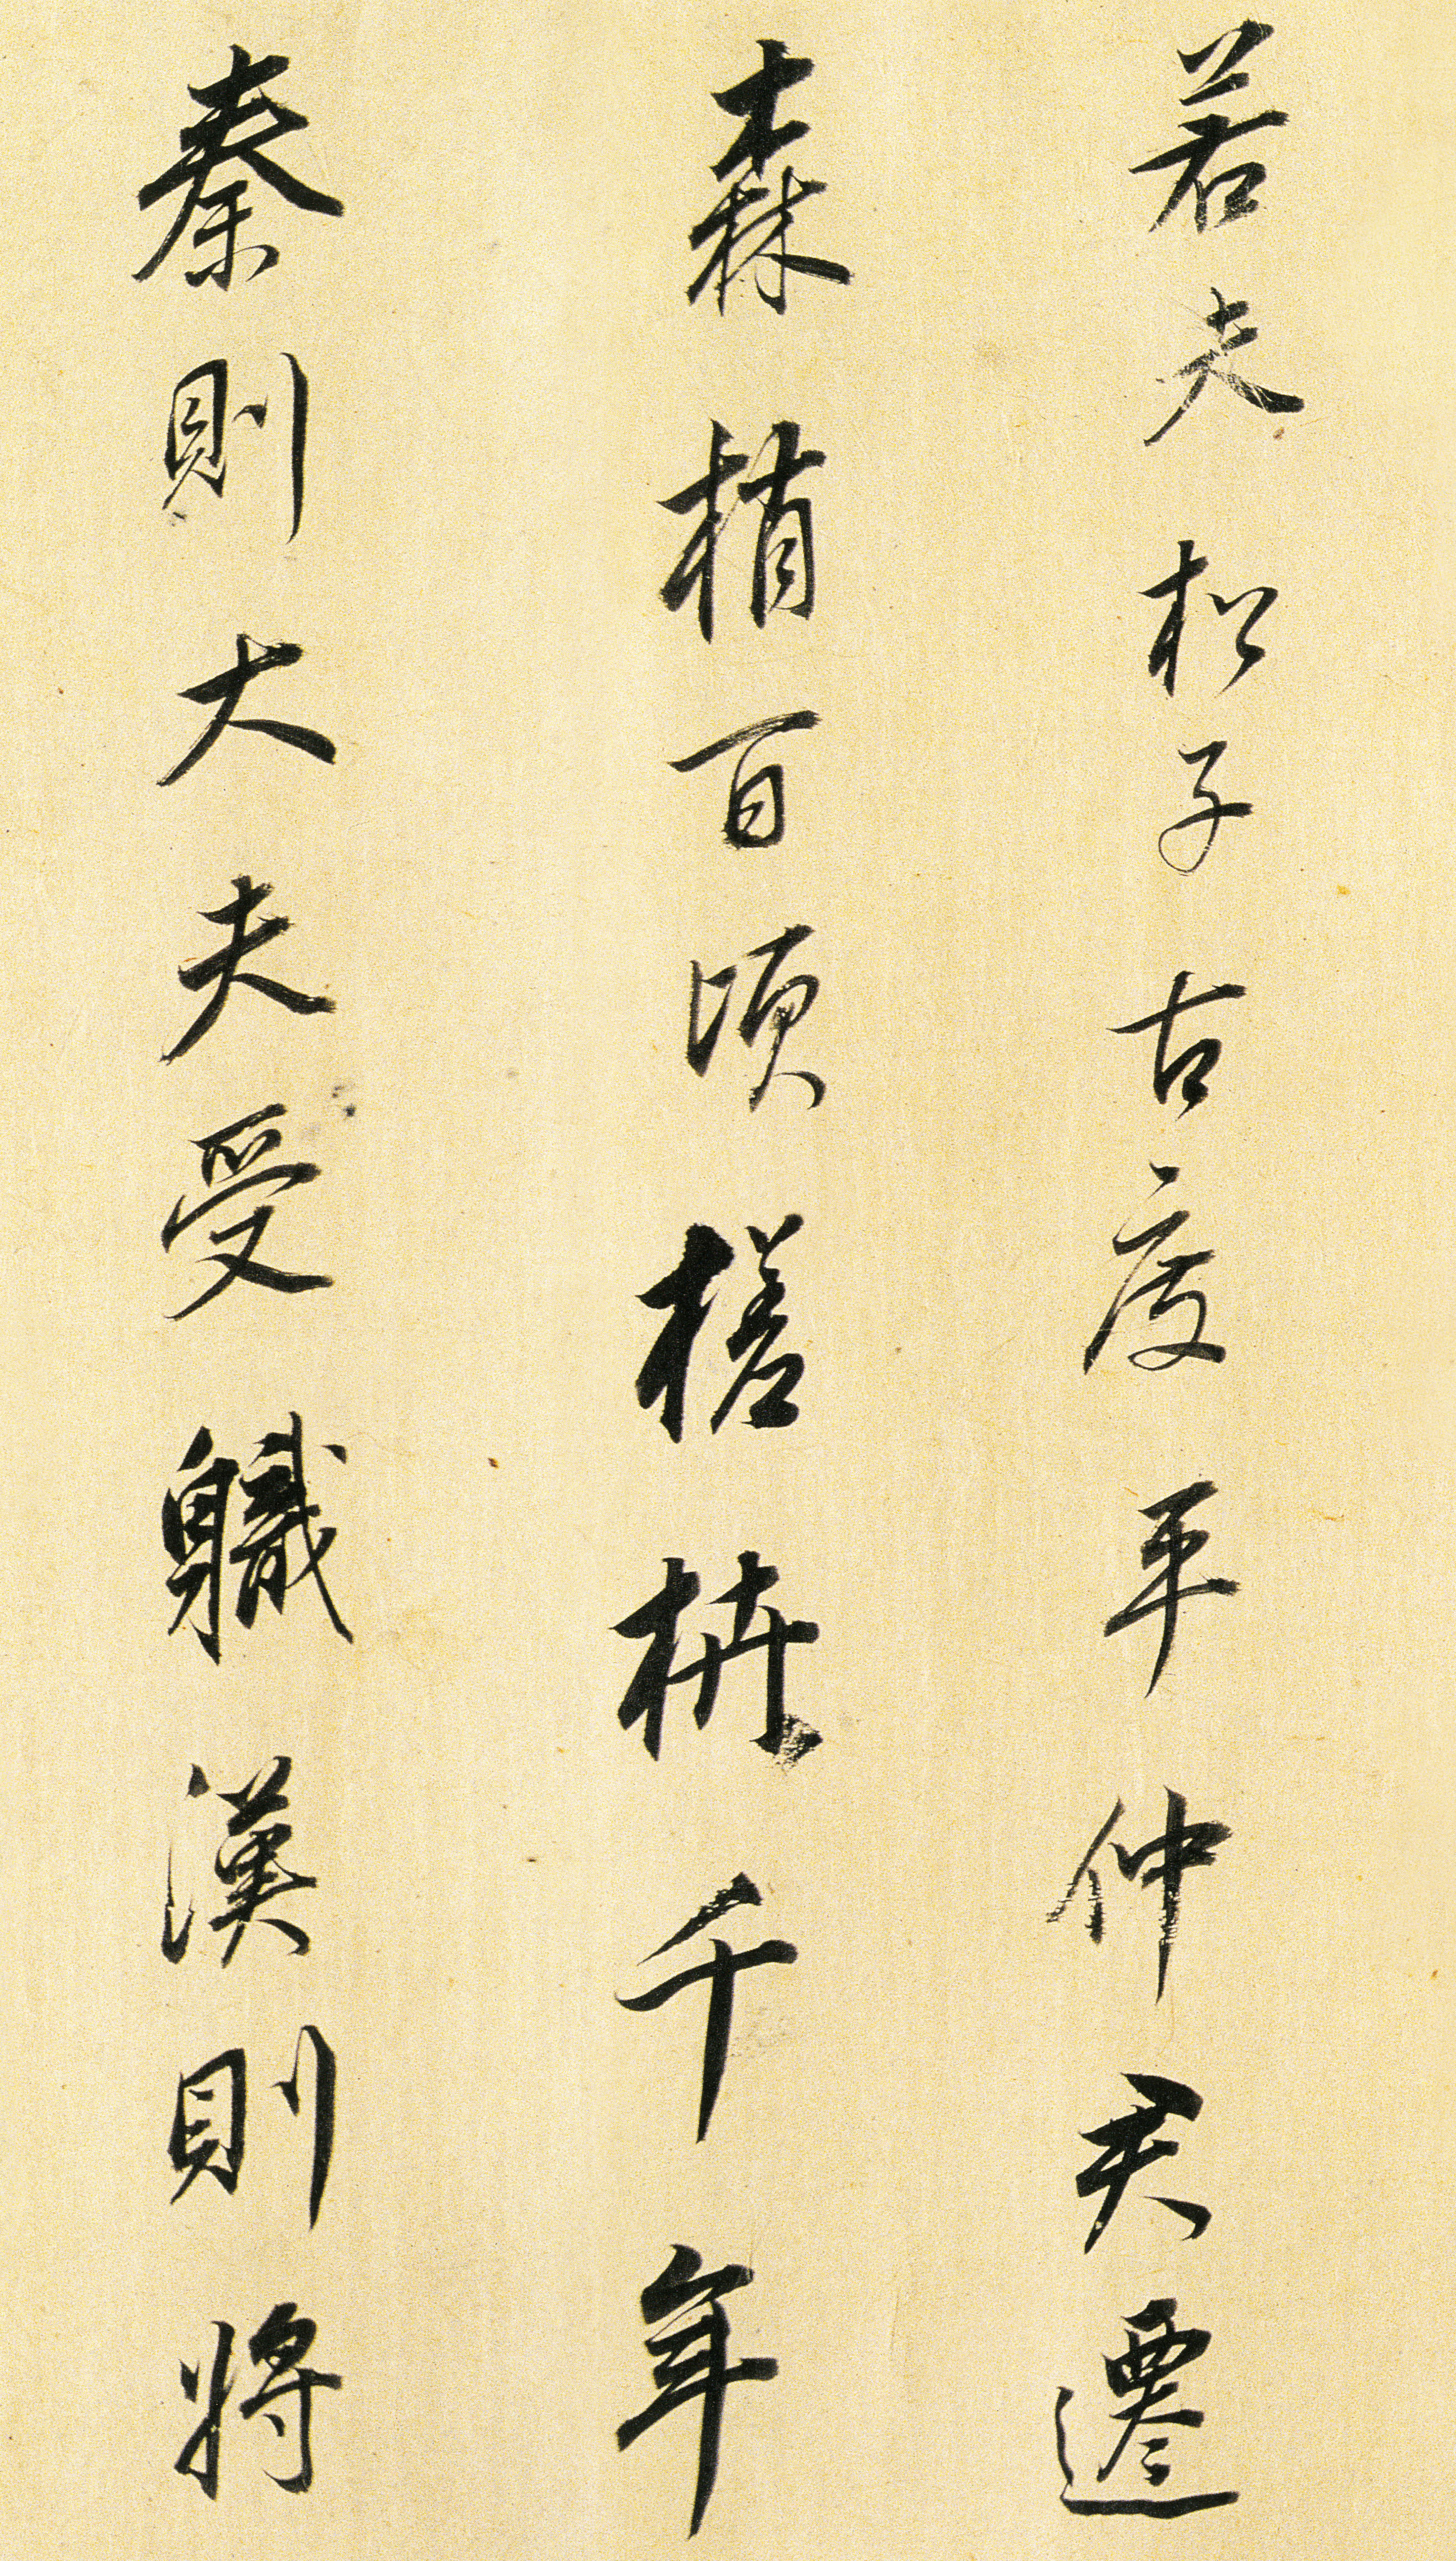 若夫松子古度平仲君遷
森梢百頃槎枿千年
秦則大夫受軄漢則將